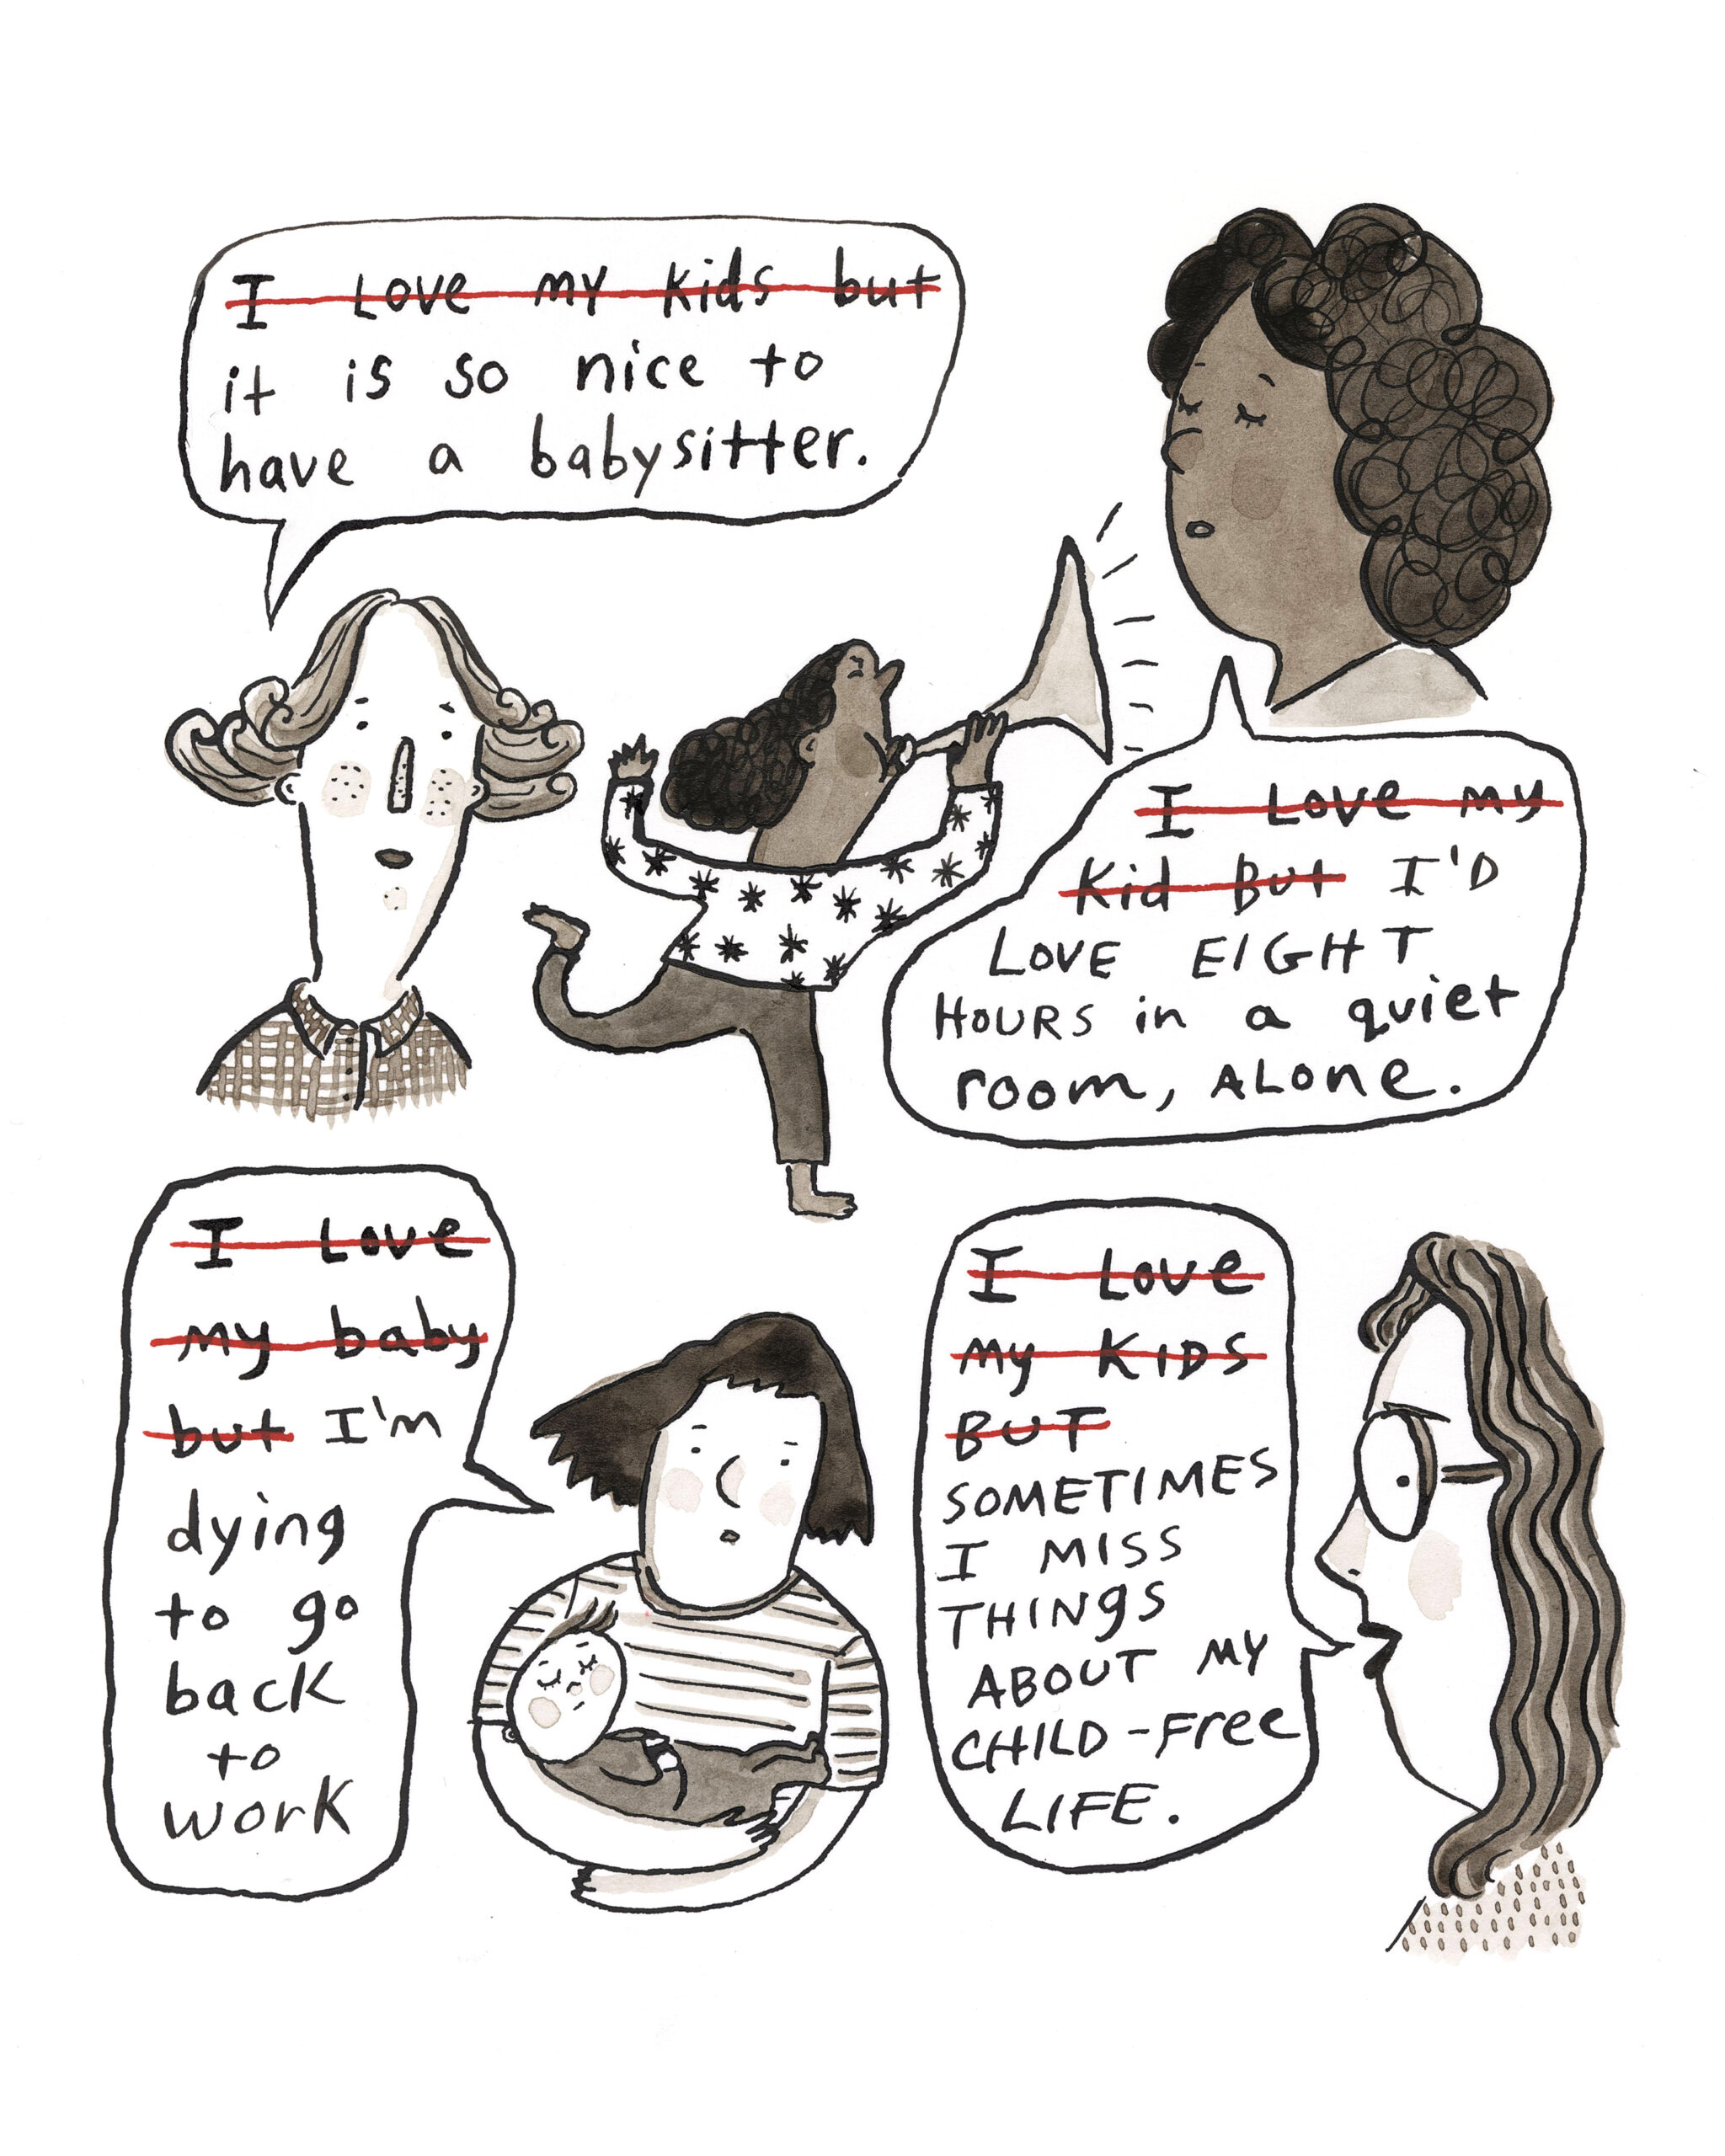 I Love my kids but
it is so nice to
have a babysitter.
I Love my
Kid But I'D
LOVE EIGHT
HOURS in a quiet
room, ALone.
I Love
my baby
but I'm
dying
to go
back
to
work
I Love
My KIDS
BUT
SOMETIMES
I MISS
THINgS
ABOUT MY
CHILD-Free
LIFE.